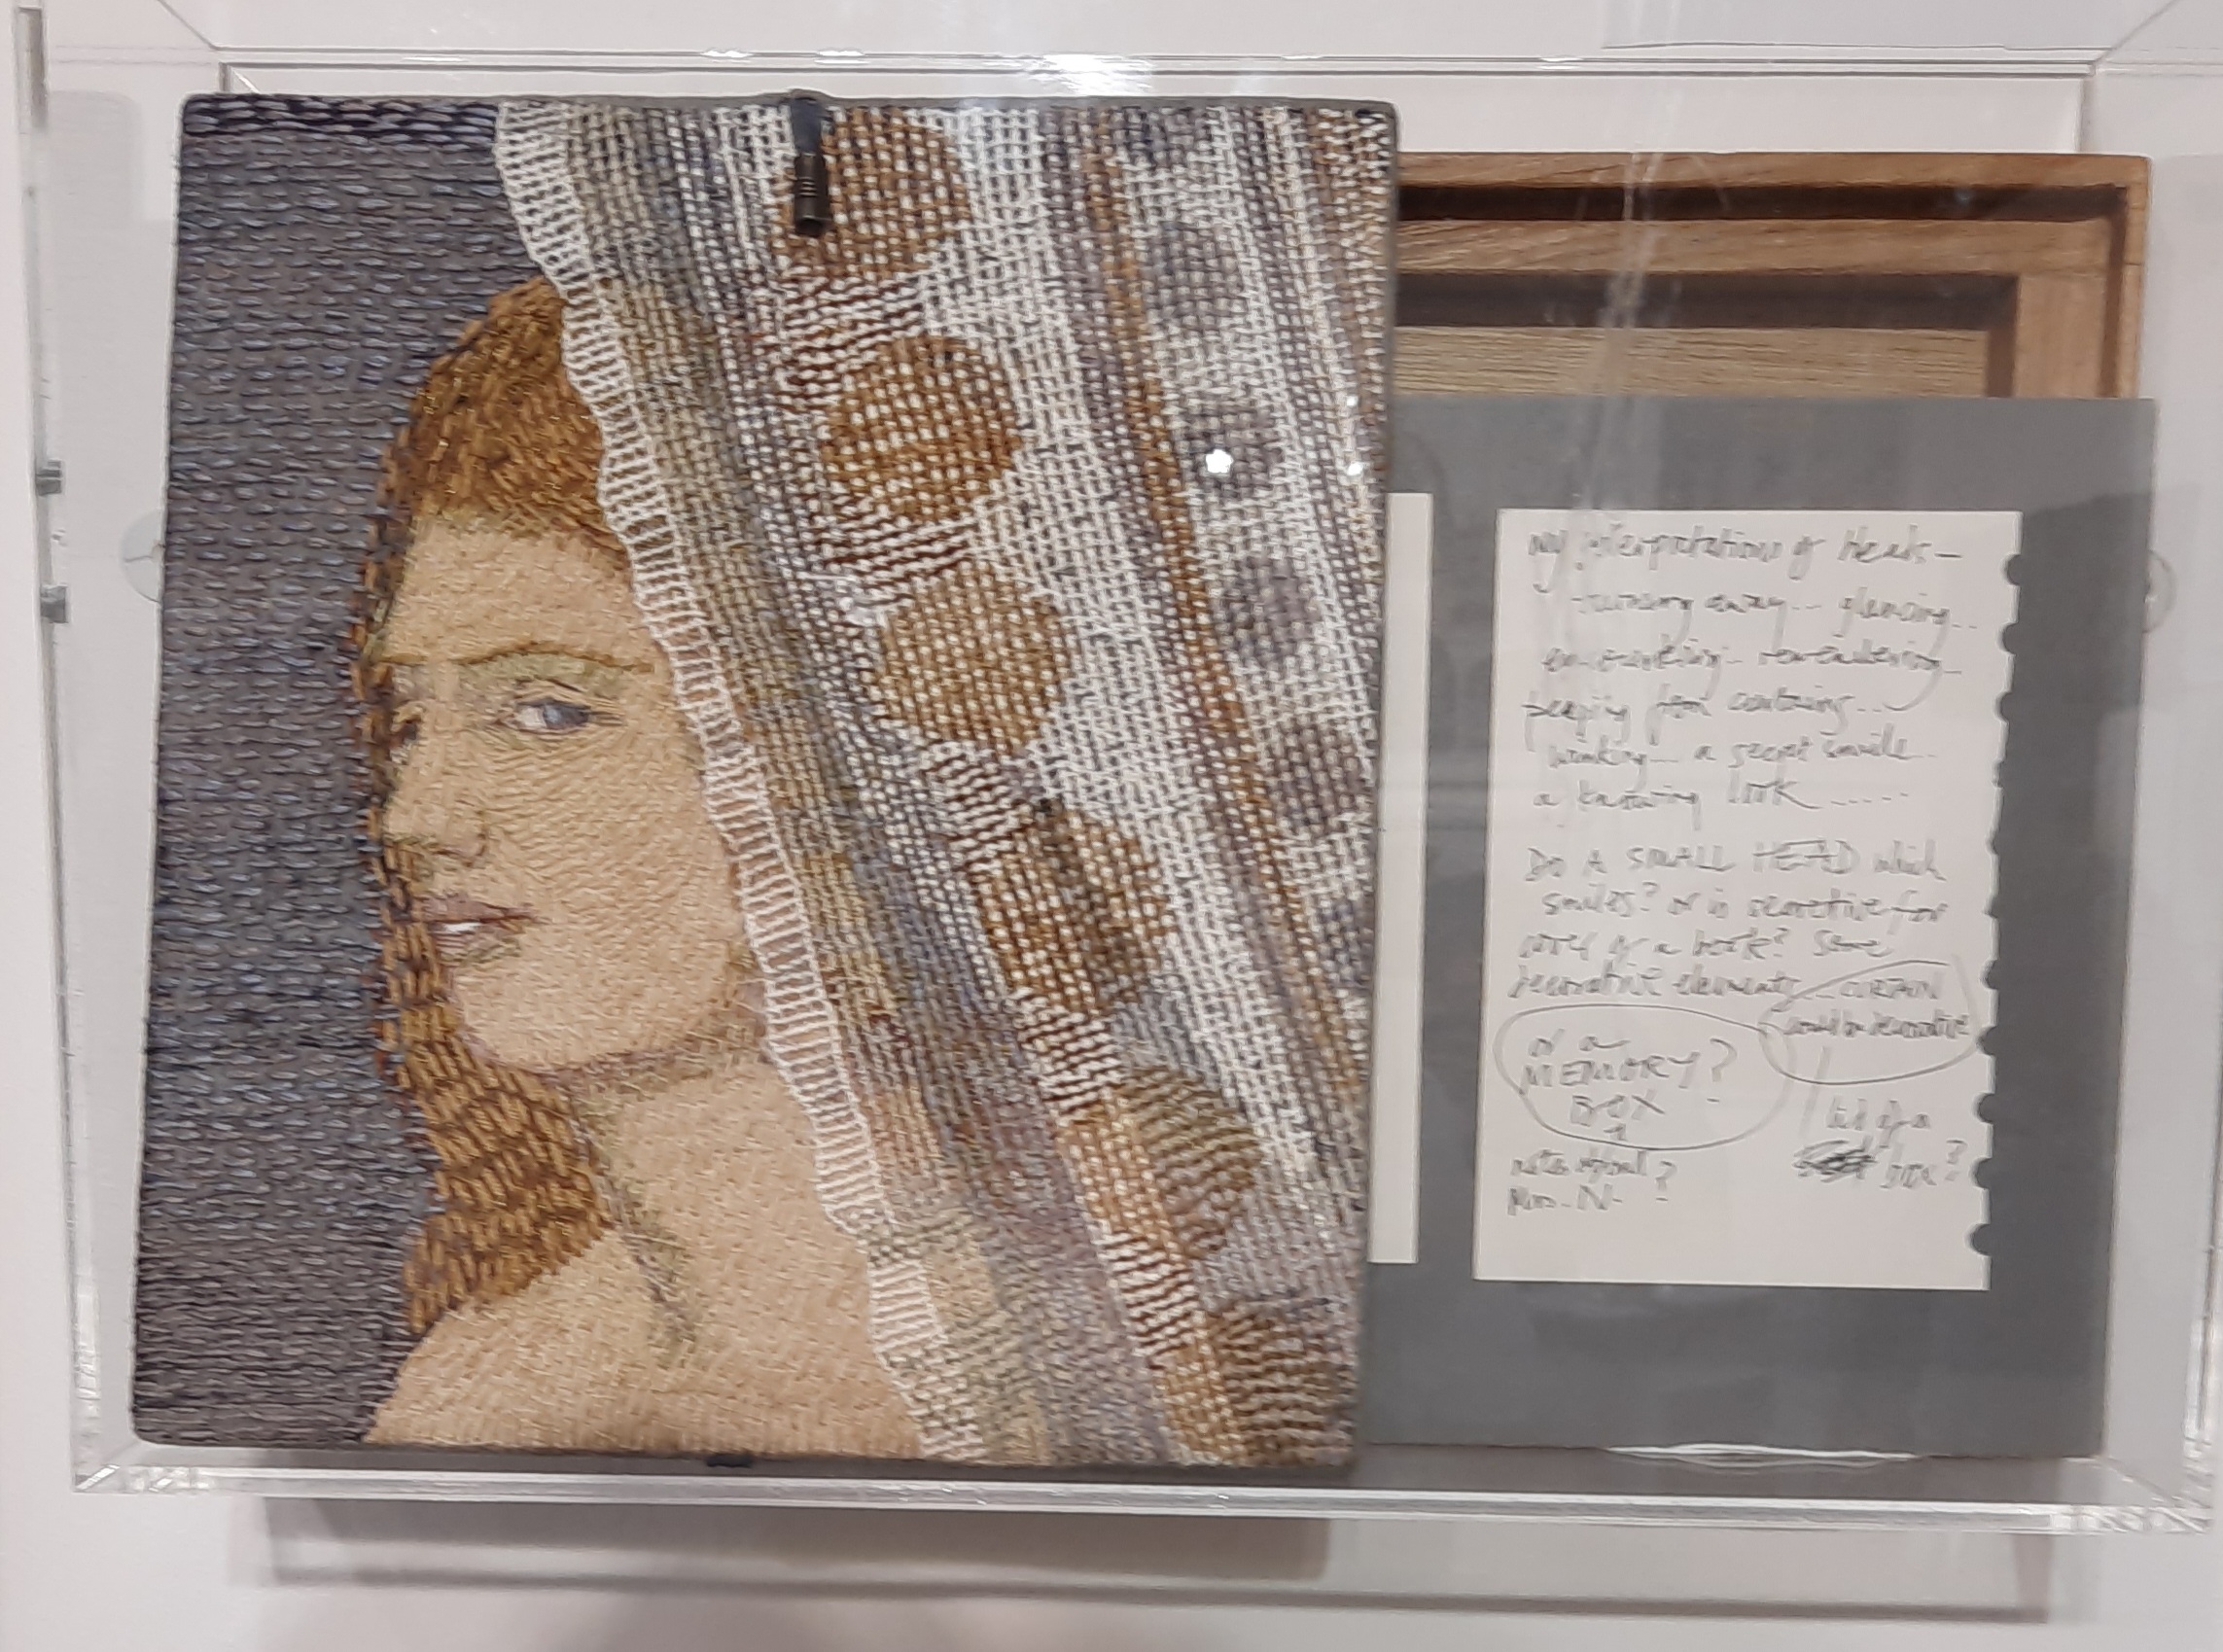 My interpretations of Heads -
turning away... glancing...
encountering.. remembering...
peeping from curtains...
winking... a secret smile..
a knowing look ......
DO A SMALL HEAD which
smiles? or is secretive for
cover of a book? Some
decorative elements... CURTAIN
could be decorative
or a
MEMORY?
BOX
lid of a
box?
notes about
Mrs. N ?